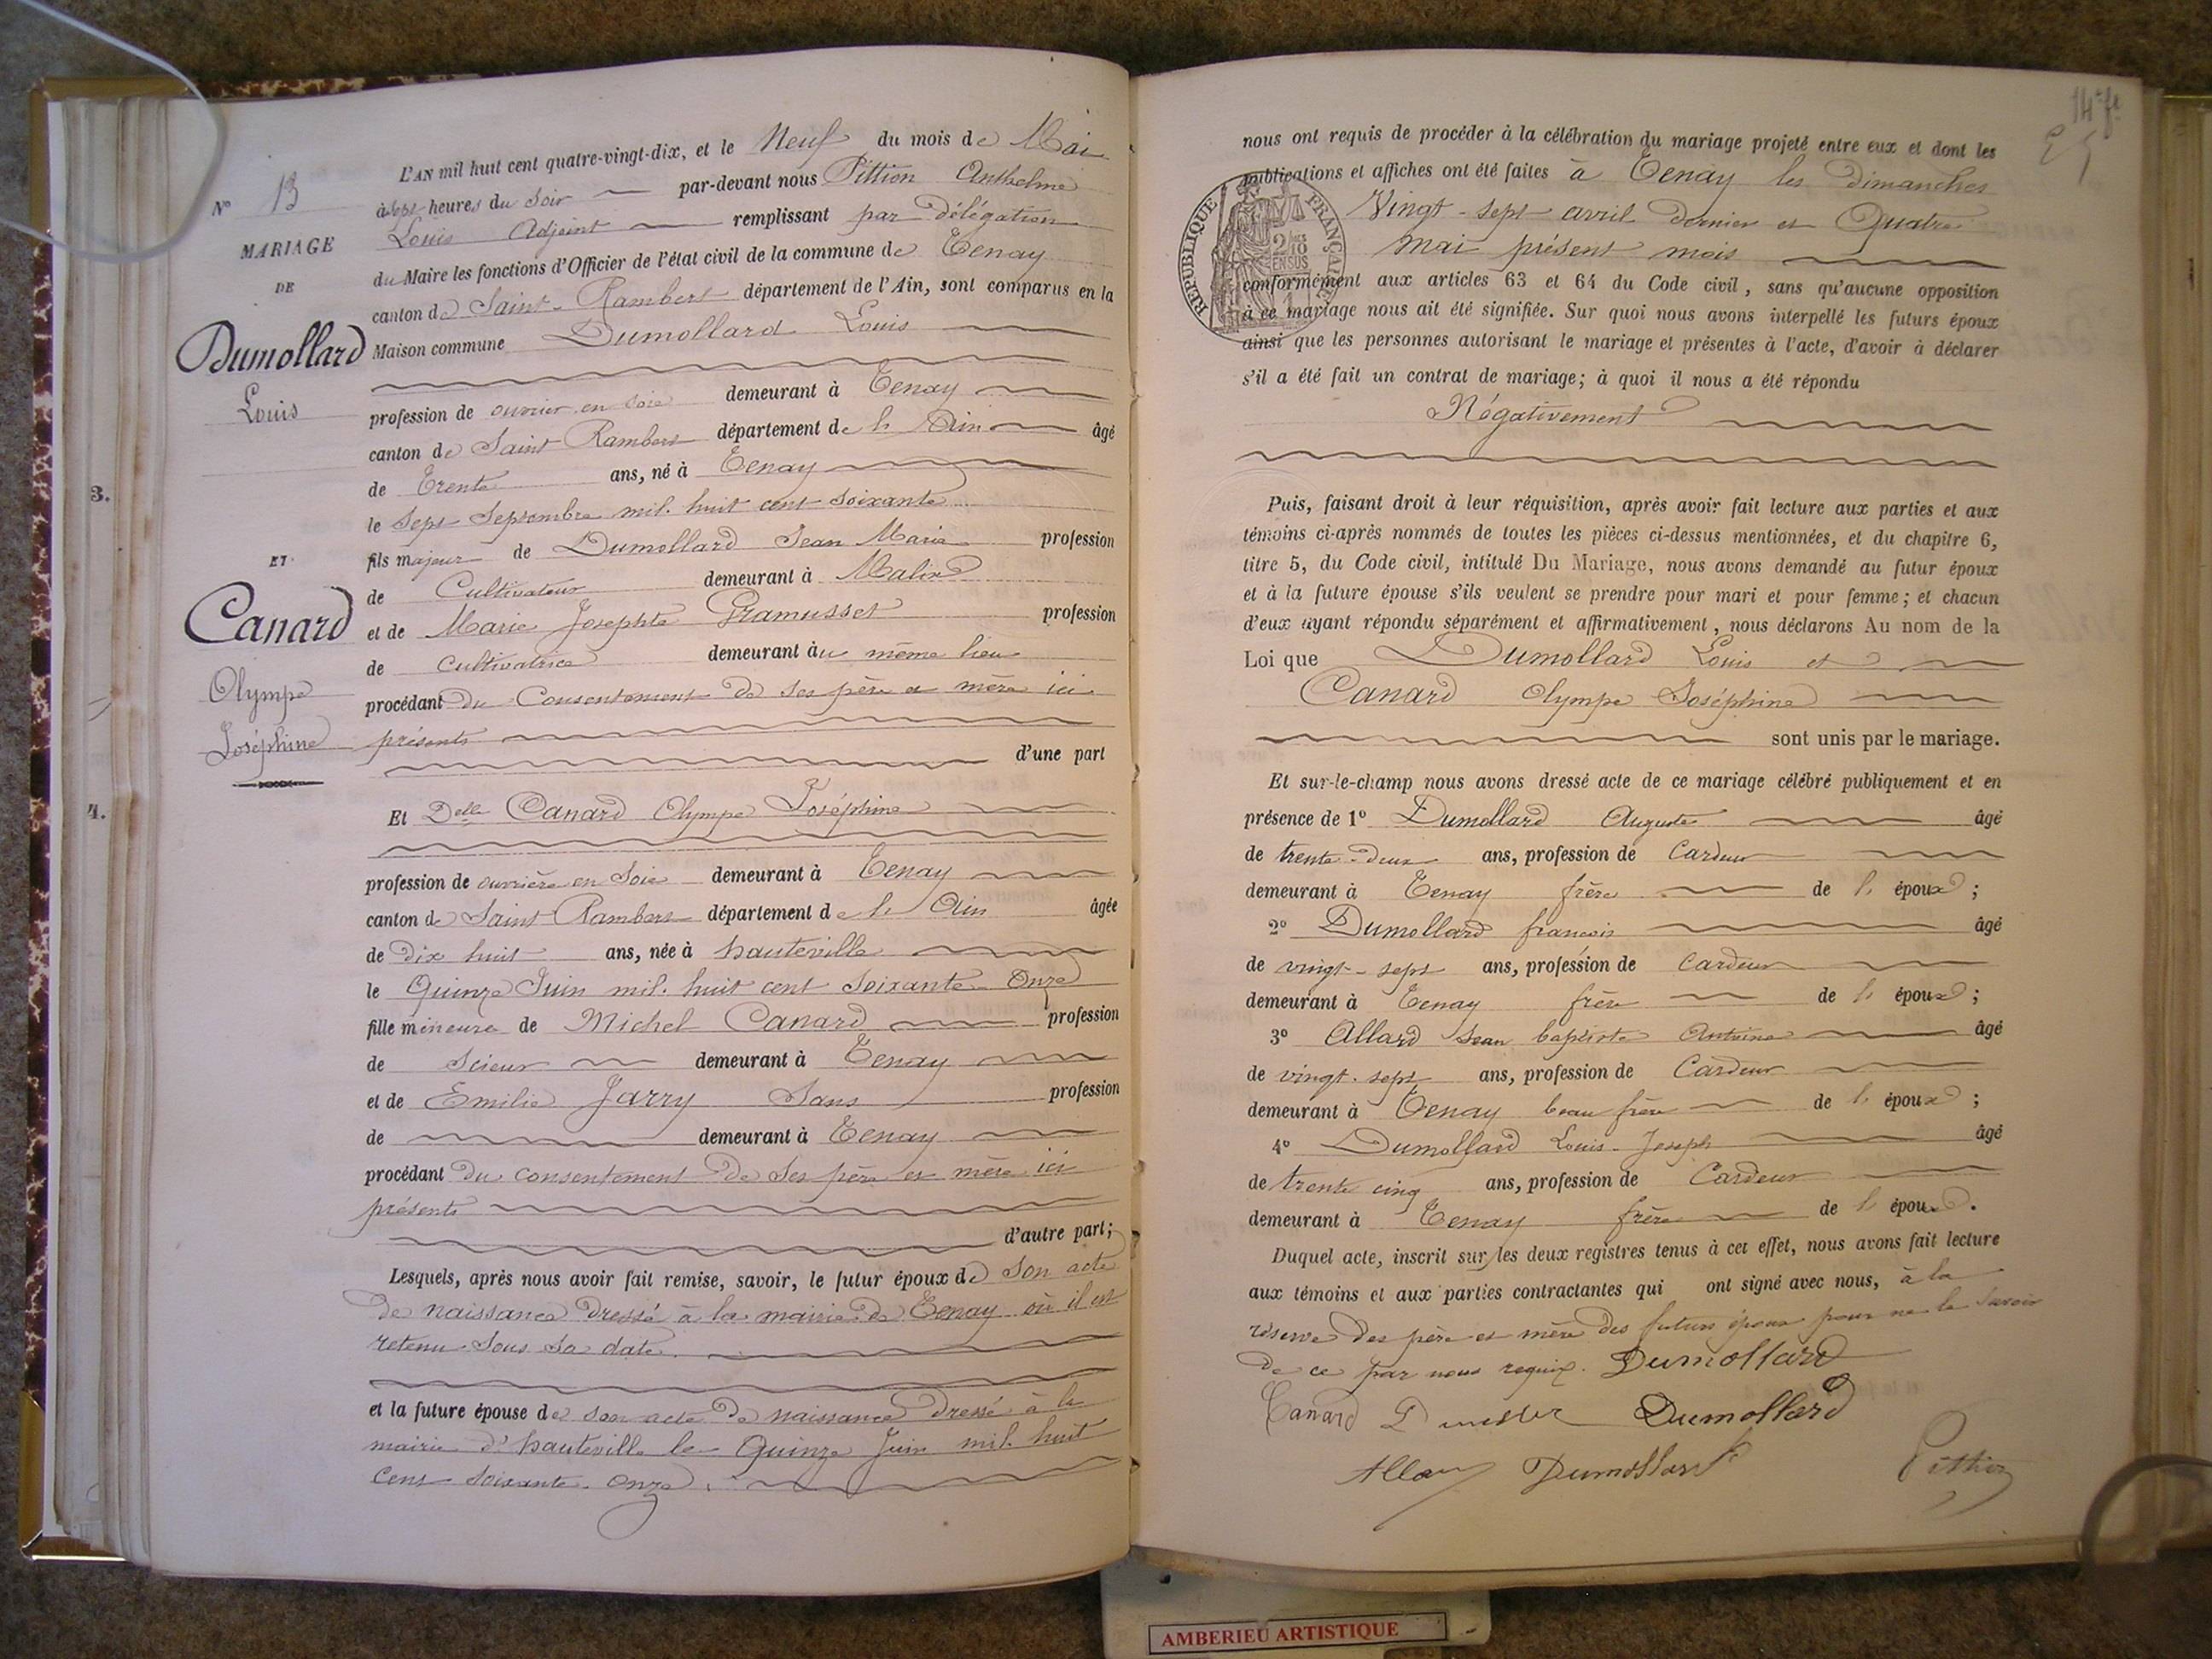 N° 13
MARIAGE
DE
Dumollard
Louis
ET
Canard
Olympe
Joséphine
3.
4.
L'AN mil huit cent quatre-vingt-dix, et le Neuf du mois de Mai
à sept heures du soir par-devant nous Pittion Anthelme
Louis Adjoint remplissant par délégation
du Maire les fonctions d'Officier de l'état civil de la commune de Tenay
canton de Saint-Rambert département de l'Ain, sont comparus en la
Maison commune Dumollard Louis
profession de ouvrier en soie demeurant à Tenay
canton de Saint Rambert département de l'Ain âgé
de Trente ans, né à Tenay
le sept Septembre mil huit cent soixante
fils majeur de Dumollard Jean Marie profession
de Cultivateur demeurant à Malix
et de Marie Josephte Gramusset profession
de cultivatrice demeurant au même lieu
procédant du Consentement de ses père et mère ici
présents
d'une part
Et Delle Canard Olympe Joséphine
profession de ouvrière en Soie demeurant à Tenay
canton de Saint Rambert département de l'Ain âgée
de dix huit ans, née à hauteville
le Quinze Juin mil huit cent soixante-Onze
fille mineure de Michel Canard profession
de Scieur demeurant à Tenay
et de Emilie Jarry Sans profession
de demeurant à Tenay
procédant du consentement de ses père et mère ici
présents
d'autre part;
Lesquels, après nous avoir fait remise, savoir, le futur époux de son acte
de naissance dressé à la mairie de Tenay où il est
retenu sous sa date.
et la future épouse de son acte de naissance dressé à la
mairie d'hauteville le Quinze Juin mil huit
cent soixante-onze.
14e ft
nous ont requis de procéder à la célébration du mariage projeté entre eux et dont les
publications et affiches ont été faites à Tenay les dimanches
Vingt-sept avril dernier et Quatre
mai présent mois
RÉPUBLIQUE FRANÇAISE
conformément aux articles 63 et 64 du Code civil, sans qu'aucune opposition
à ce mariage nous ait été signifiée. Sur quoi nous avons interpellé les futurs époux
ainsi que les personnes autorisant le mariage et présentes à l'acte, d'avoir à déclarer
s'il a été fait un contrat de mariage; à quoi il nous a été répondu
Négativement
Puis, faisant droit à leur réquisition, après avoir fait lecture aux parties et aux
témoins ci-après nommés de toutes les pièces ci-dessus mentionnées, et du chapitre 6,
titre 5, du Code civil, intitulé Du Mariage, nous avons demandé au futur époux
et à la future épouse s'ils veulent se prendre pour mari et pour femme; et chacun
d'eux ayant répondu séparément et affirmativement, nous déclarons Au nom de la
Loi que Dumollard Louis et
Canard Olympe Joséphine
sont unis par le mariage.
Et sur-le-champ nous avons dressé acte de ce mariage célébré publiquement et en
présence de 1° Dumollard Auguste âgé
de trente-deux ans, profession de Cardeur
demeurant à Tenay frère de l'époux;
2° Dumollard francois âgé
de vingt-sept ans, profession de Cardeur
demeurant à Tenay frère de l'époux;
3° Allard Jean baptiste Antoine âgé
de vingt-sept ans, profession de Cardeur
demeurant à Tenay beau frère de l'époux;
4° Dumollard Louis-Joseph âgé
de trente cinq ans, profession de Cardeur
demeurant à Tenay frère de l'époux.
Duquel acte, inscrit sur les deux registres tenus à cet effet, nous avons fait lecture
aux témoins et aux parties contractantes qui ont signé avec nous, à la
réserve des père et mère des futurs époux pour ne le savoir
de ce par nous requis. Dumollard
Canard Dumollard
Allard Dumollard Pittion
AMBERIEU ARTISTIQUE